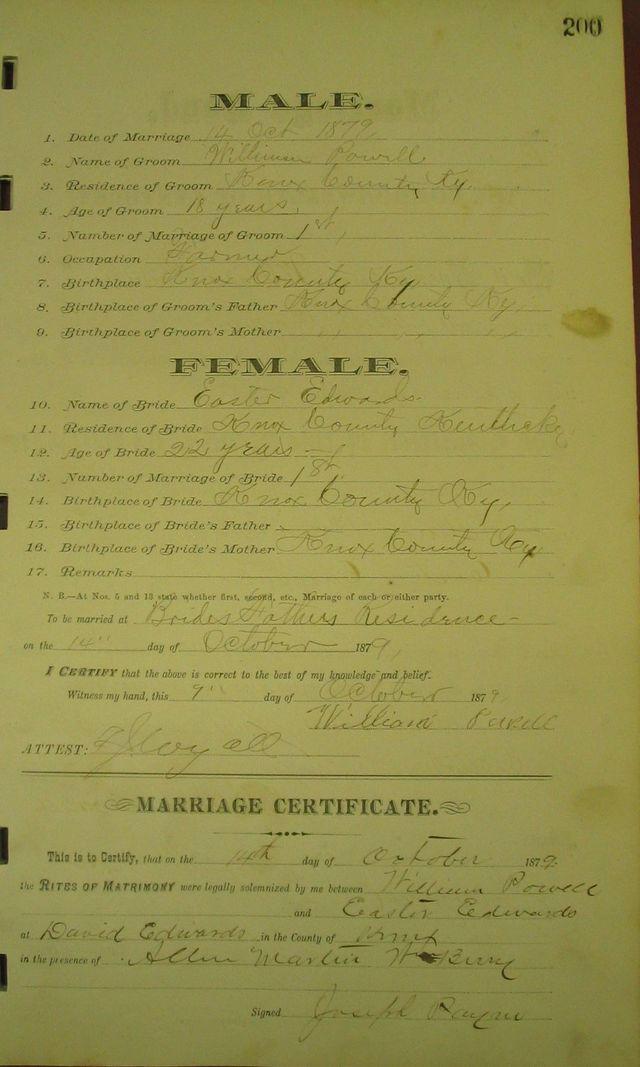 200
MALE.
1. Date of Marriage 14 Oct 1879
2. Name of Groom William Powell
3. Residence of Groom Knox County Ky.
4. Age of Groom 18 years.
5. Number of Marriage of Groom 1st,
6. Occupation Farmer
7. Birthplace Knox County Ky
8. Birthplace of Groom's Father Knox County Ky,
9. Birthplace of Groom's Mother " " "
FEMALE.
10. Name of Bride Easter Edwards.
11. Residence of Bride Knox County Kentucky
12. Age of Bride 22 years
13. Number of Marriage of Bride 1st.
14. Birthplace of Bride Knox County Ky,
15. Birthplace of Bride's Father
16. Birthplace of Bride's Mother Knox County Ky
17. Remarks
N. B.—At Nos. 5 and 13 state whether first, second, etc., Marriage of each or either party.
To be married at Brides Fathers Residence
on the 14" day of October 1879,
I CERTIFY that the above is correct to the best of my knowledge and belief.
Witness my hand, this 9" day of October 1879
William Powell
ATTEST:
MARRIAGE CERTIFICATE.
This is to Certify, that on the 14th day of October 1879.
the RITES OF MATRIMONY were legally solemnized by me between William Powell
and Easter Edwards
at David Edwards in the County of Knox
in the presence of Allen Martin
Signed Joseph Payne